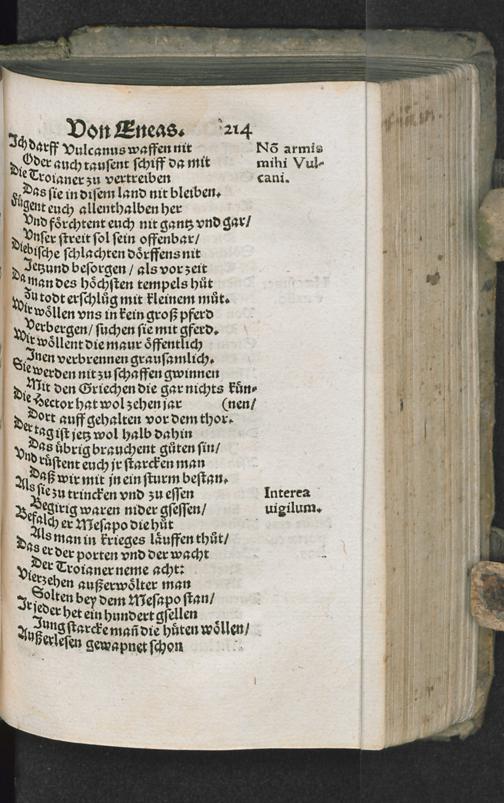 Von Eneas. 214
Ich darff Vulcanus waffen nit
Oder auch tausent schiff da mit
Die Troianer zu vertreiben
Das sie in disem land nit bleiben.
Fügent euch allenthalben her
Vnd förchtent euch nit gantz vnd gar/
Vnser streit sol sein offenbar/
Diebische schlachten dörffens nit
Jetzund besorgen/ als vor zeit
Da man des höchsten tempels hüt
Zu todt erschlüg mit kleinem müt.
Wir wöllen vns in kein groß pferd
Verbergen/ suchen sie mit gferd.
Wir wöllent die maur öffentlich
Jnen verbrennen grausamlich.
Sie werden nit zu schaffen gwinnen
Mit den Griechen die gar nichts kün-
Die Hector hat wol zehen jar (nen/
Dort auff gehalten vor dem thor.
Der tag ist jetz wol halb dahin
Das übrig brauchent güten sin/
Vnd rüstent euch jr starcken man
Daß wir mit in ein sturm bestan.
Als sie zu trincken vnd zu essen
Begirig waren nider gsessen/
Befalch er Mesapo die hüt
Als man in krieges läuffen thüt/
Das er der porten vnd der wacht
Der Troianer neme acht:
Vierzehen außerwölter man
Solten bey dem Mesapo stan/
Jr jeder het ein hundert gsellen
Jung starcke mañ die hüten wöllen/
Außerlesen gewapnet schon
Nō armis
mihi Vul-
cani.
Interea
uigilum.